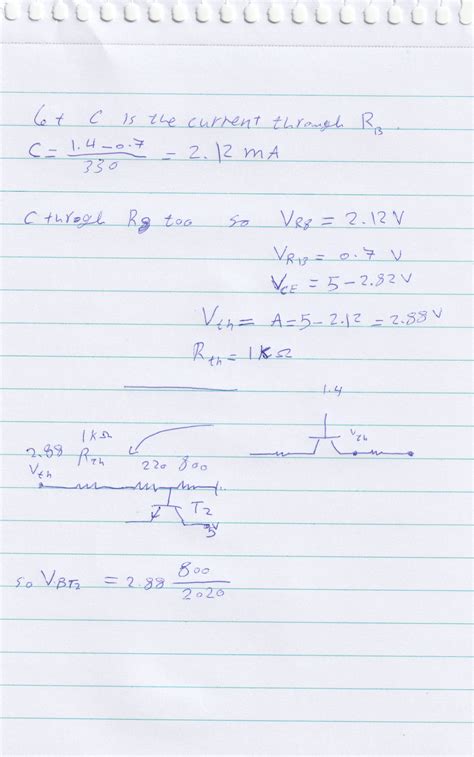 let C is the current through R_B.
C = (1.4-0.7)/330 = 2.12 mA
C through R8 too so V_R8 = 2.12 V
V_R13 = 0.7 V
V_CE = 5-2.82V
V_th = A=5-2.12 = 2.88V
R_th = 1kΩ
1.4
V_th
1kΩ
2.88 R_th 220 800
V_th
T2
5
so V_BT2 = 2.88 800/2020